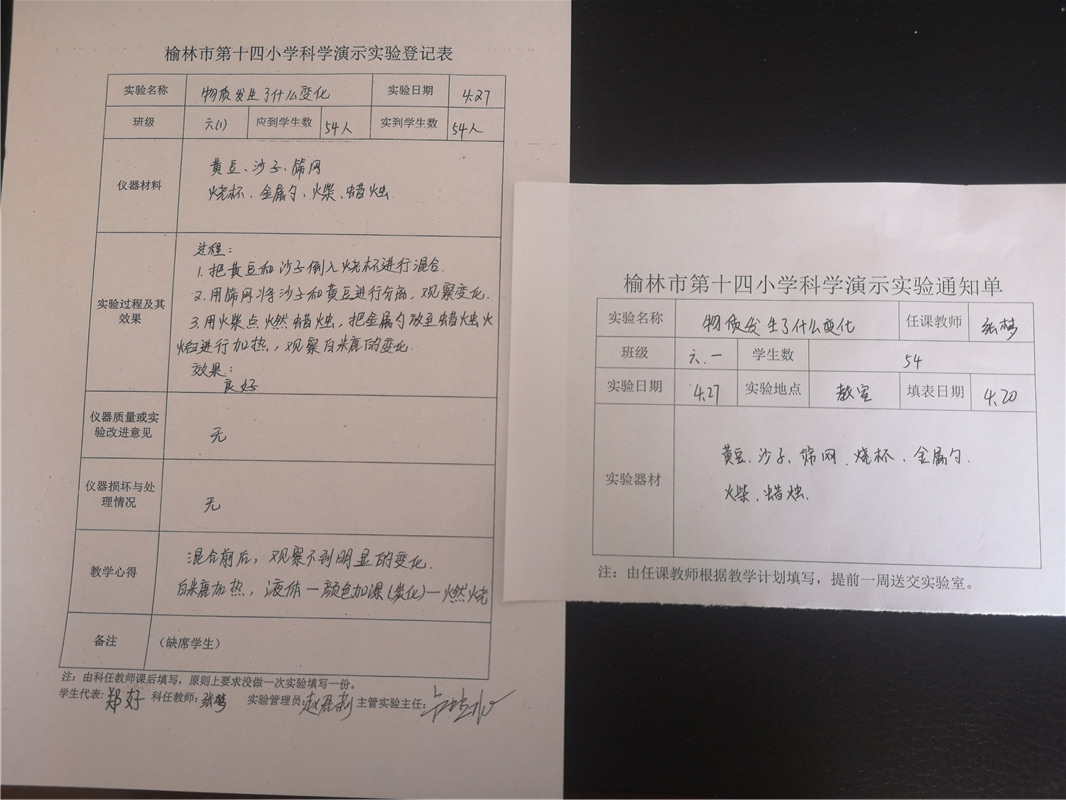 榆林市第十四小学科学演示实验登记表
实验名称 物质发生了什么变化 实验日期 4.27
班级 六(1) 应到学生数 54人 实到学生数 54人
仪器材料
黄豆、沙子、筛网
烧杯、金属勺、火柴、蜡烛.
实验过程及其
效果
过程:
1.把黄豆和沙子倒入烧杯进行混合.
2.用筛网将沙子和黄豆进行分离,观察变化.
3.用火柴点燃蜡烛,把金属勺放至蜡烛火
焰进行加热,观察白糖的变化
效果:
良好
仪器质量或实
验改进意见
无
仪器损坏与处
理情况
无
教学心得
混合前后,观察不到明显的变化.
白糖加热,液体—颜色加深(炭化)—燃烧
备注 (缺席学生)
注:由科任教师课后填写,原则上要求没做一次实验填写一份。
学生代表:郑好 科任教师:张梦 实验管理员:赵 主管实验主任:
榆林市第十四小学科学演示实验通知单
实验名称 物质发生了什么变化 任课教师 张梦
班级 六.一 学生数 54
实验日期 4.27 实验地点 教室 填表日期 4.20
实验器材
黄豆、沙子、筛网、烧杯、金属勺.
火柴、蜡烛.
注:由任课教师根据教学计划填写,提前一周送交实验室。